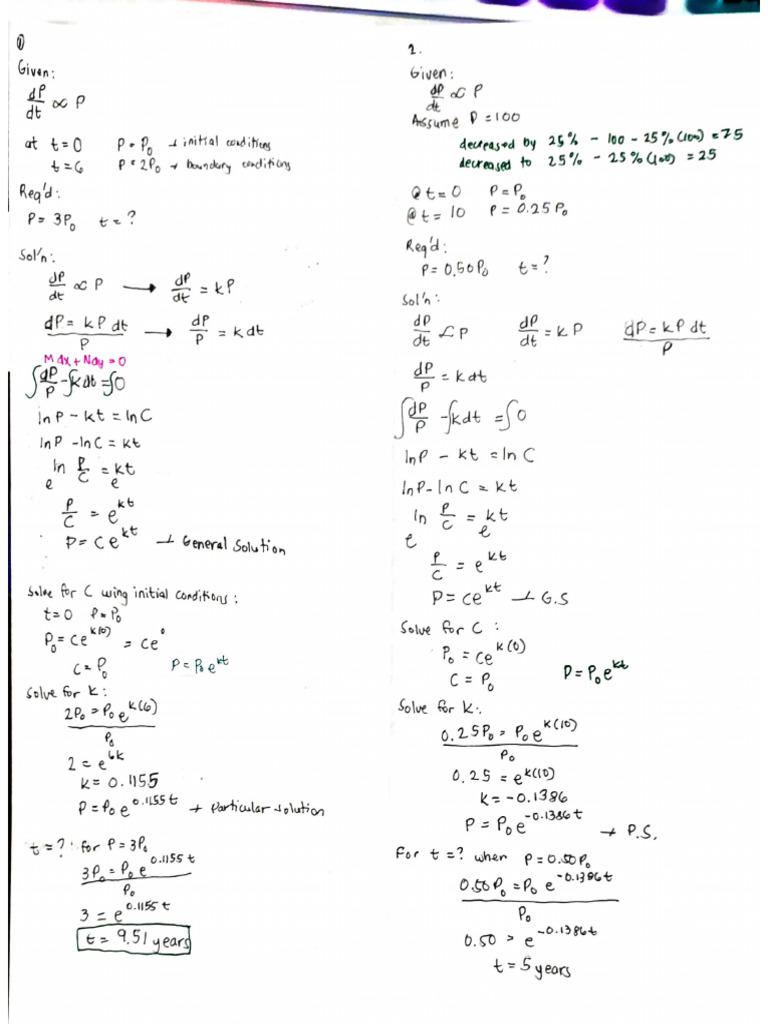 ①
Given:
dP/dt ∝ P
at t=0 P=P₀ → initial conditions
t=6 P=2P₀ → boundary conditions
Req'd:
P=3P₀ t=?
Sol'n:
dP/dt ∝ P → dP/dt = kP
dP = kP dt / P → dP/P = k dt
M dx + N dy = 0
∫dP/P - ∫k dt = ∫0
ln P - kt = ln C
ln P - ln C = kt
e^(ln P/C) = e^(kt)
P/C = e^(kt)
P = Ce^(kt) → General Solution
Solve for C using initial conditions:
t=0 P=P₀
P₀ = Ce^(k(0)) = Ce⁰
C = P₀ P = P₀e^(kt)
Solve for k:
2P₀ = P₀e^(k(6)) / P₀
2 = e^(6k)
k = 0.1155
P = P₀e^(0.1155t) → Particular solution
t=? for P=3P₀
3P₀ = P₀e^(0.1155t) / P₀
3 = e^(0.1155t)
t = 9.51 years
2.
Given:
dP/dt ∝ P
Assume P=100
decreased by 25% - 100 - 25%(100) = 75
decreased to 25% - 25%(100) = 25
@t=0 P=P₀
@t=10 P=0.25P₀
Req'd:
P=0.50P₀ t=?
Sol'n:
dP/dt ∝ P dP/dt = kP dP = kP dt / P
dP/P = k dt
∫dP/P - ∫k dt = ∫0
ln P - kt = ln C
ln P - ln C = kt
e^(ln P/C) = e^(kt)
P/C = e^(kt)
P = Ce^(kt) → G.S
Solve for C:
P₀ = Ce^(k(0))
C = P₀ P = P₀e^(kt)
Solve for k:
0.25P₀ = P₀e^(k(10)) / P₀
0.25 = e^(k(10))
k = -0.1386
P = P₀e^(-0.1386t) → P.S.
For t=? when P=0.50P₀
0.50P₀ = P₀e^(-0.1386t) / P₀
0.50 = e^(-0.1386t)
t = 5 years